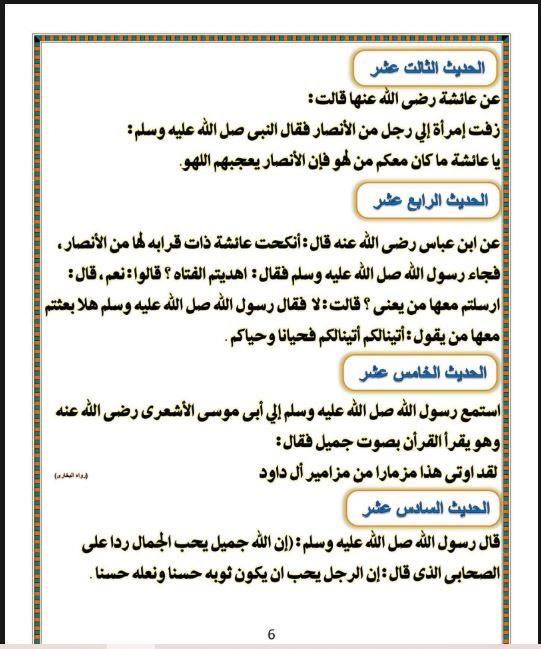 الحديث الثالث عشر
عن عائشة رضى الله عنها قالت :
زفت إمرأة إلي رجل من الأنصار فقال النبى صل الله عليه وسلم :
يا عائشة ما كان معكم من لهو فإن الأنصار يعجبهم اللهو.
الحديث الرابع عشر
عن ابن عباس رضى الله عنه قال : أنكحت عائشة ذات قرابه لها من الأنصار ،
فجاء رسول الله صل الله عليه وسلم فقال : اهديتم الفتاه ؟ قالوا : نعم ، قال :
ارسلتم معها من يغنى ؟ قالت : لا فقال رسول الله صل الله عليه وسلم هلا بعثتم
معها من يقول : أتينالكم أتينالكم فحيانا وحياكم .
الحديث الخامس عشر
استمع رسول الله صل الله عليه وسلم إلي أبى موسى الأشعرى رضى الله عنه
وهو يقرأ القرأن بصوت جميل فقال :
لقد اوتى هذا مزمارا من مزامير أل داود (رواه البخارى)
الحديث السادس عشر
قال رسول الله صل الله عليه وسلم : (إن الله جميل يحب الجمال ردا على
الصحابى الذى قال : إن الرجل يحب ان يكون ثوبه حسنا ونعله حسنا .
6